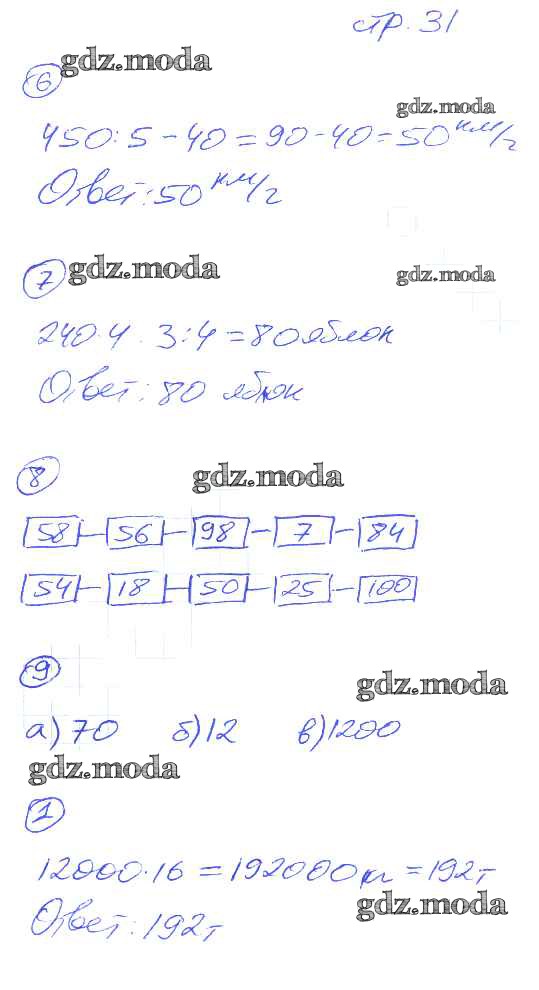 стр. 31
gdz.moda
6
gdz.moda
450:5-40=90-40=50 км/г
Ответ: 50 км/г
gdz.moda
7
gdz.moda
240·4·3:4=80 яблок
Ответ: 80 яблок
8
gdz.moda
58 - 56 - 98 - 7 - 84
54 - 18 - 50 - 25 - 100
9
gdz.moda
а) 70 б) 12 в) 1200
gdz.moda
1
12000·16=192000 кг=192т
gdz.moda
Ответ: 192т